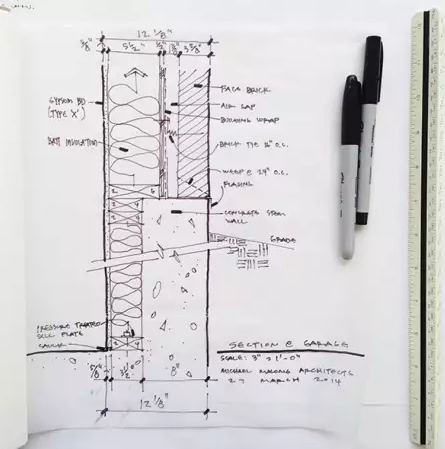 12 1/8"
5/8" 5 1/2" 1/2" 1 7/8" 3 5/8"
GYPSUM BD
(TYPE 'X')
BATT INSULATION
FACE BRICK
AIR GAP
BUILDING WRAP
BRICK TIE 16" O.C.
WEEP @ 24" O.C.
FLASHING
CONCRETE STEM
WALL
GRADE
PRESSURE TREATED
SILL PLATE
CAULK
5/8" 3 1/2" 8"
12 1/8"
SECTION @ GARAGE
SCALE: 3" = 1'-0"
MICHAEL MALONE ARCHITECTS
27 MARCH 2014